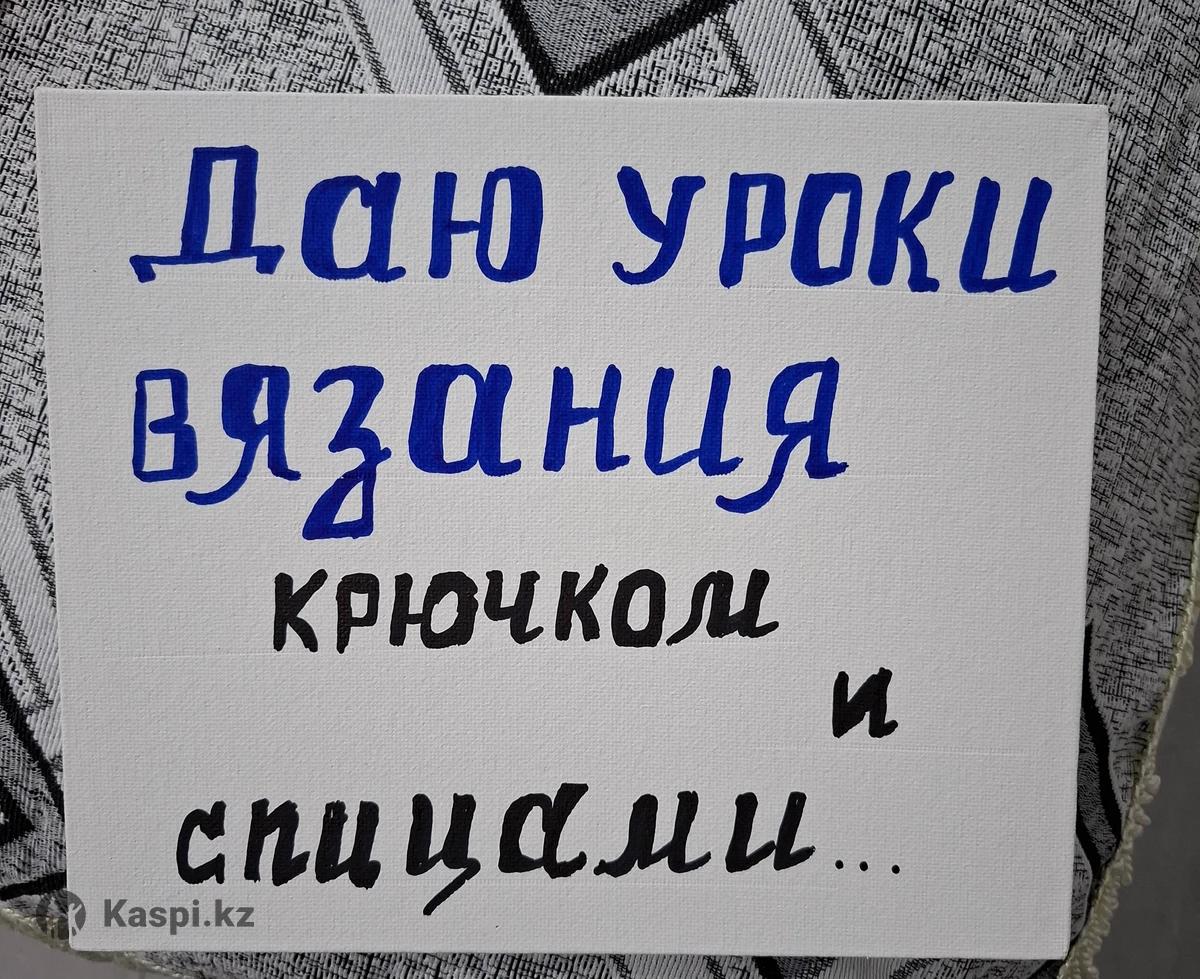 Даю уроки
вязания
крючком
и
спицами...
Kaspi.kz